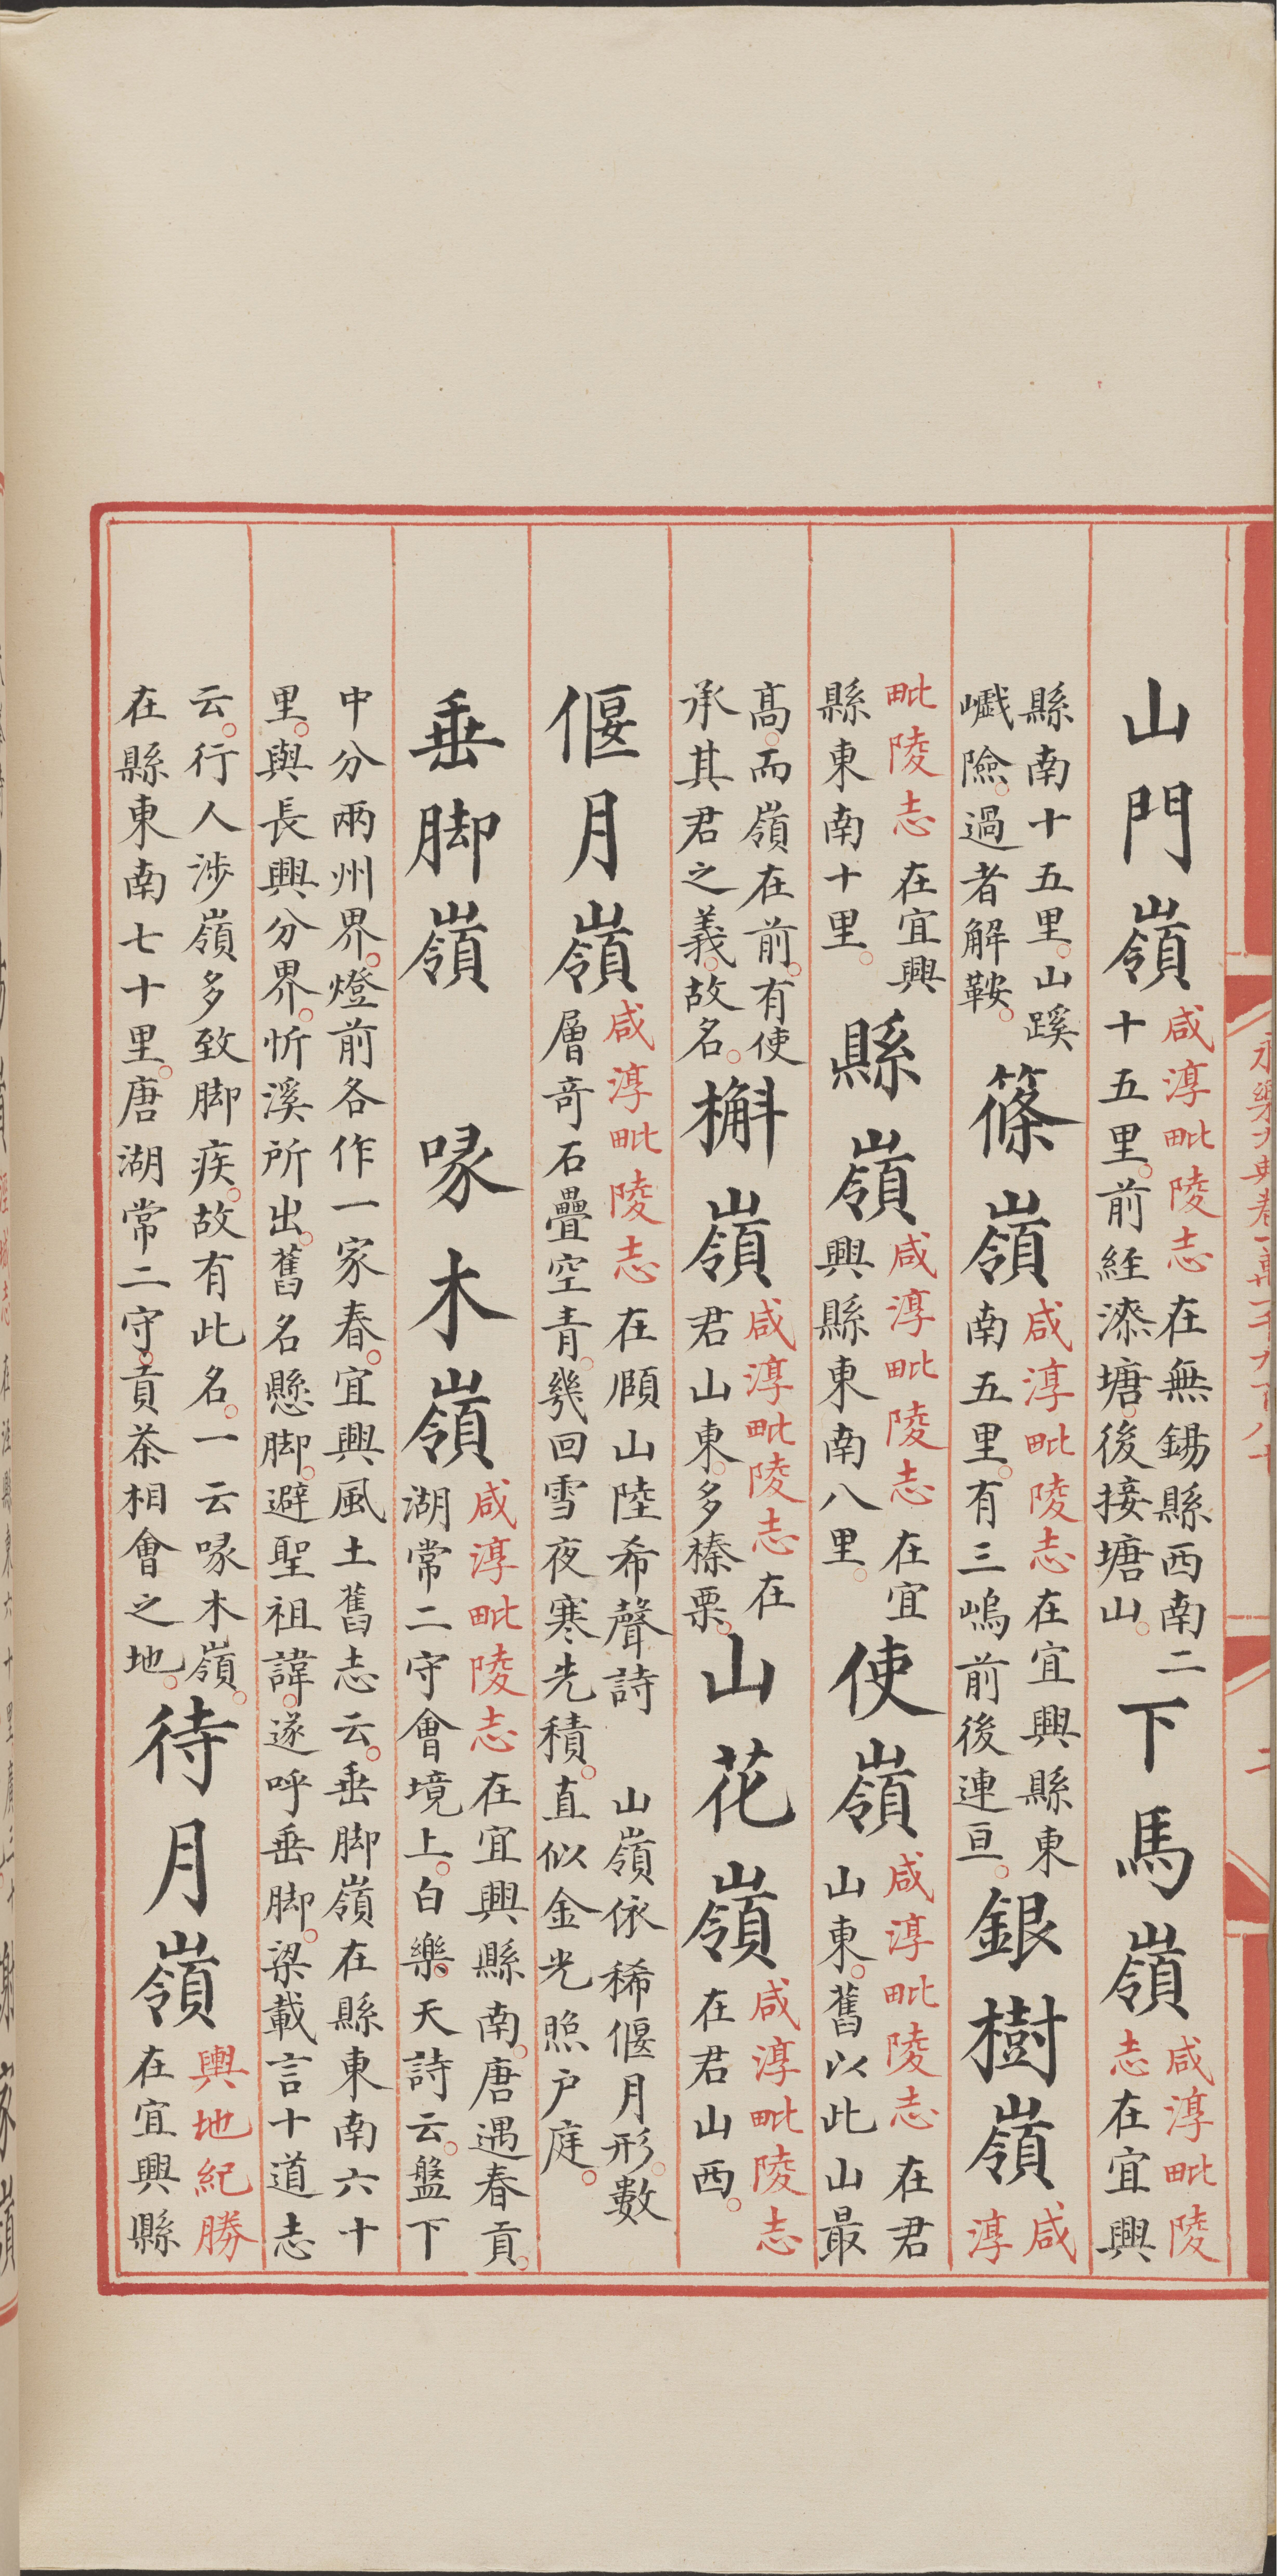 山門嶺
咸淳毗陵志 在無錫縣西南二
十五里。前経漆塘。後接塘山。
下馬嶺
咸淳毗陵
志在宜興
縣南十五里。山蹊
巇險。過者解鞍。
篠嶺
咸淳毗陵志在宜興縣東
南五里。有三嵨前後連亘。
銀樹嶺
咸
淳
毗陵志 在宜興
縣東南十里。
縣嶺
咸淳毗陵志 在宜
興縣東南八里。
使嶺
咸淳毗陵志 在君
山東。舊以此山最
髙。而嶺在前。有使
承其君之義。故名。
槲嶺
咸淳毗陵志在
君山東。多榛栗。
山花嶺
咸淳毗陵志
在君山西。
偃月嶺
咸淳毗陵志 在頋山陸希聲詩 山嶺依稀偃月形。數
層竒石疊空青。幾回雪夜寒光積。直似金光照户庭。
垂脚嶺 啄木嶺
咸淳毗陵志在宜興縣南。唐遇春貢。
湖常二守會境上。白樂天詩云。盤下
中分兩州界。燈前各作一家春。宜興風土舊志云。垂脚嶺在縣東南六十
里。與長興分界。忻溪所出。舊名懸脚。避聖祖諱。遂呼垂脚。梁載言十道志
云。行人涉嶺多致脚疾。故有此名。一云啄木嶺。
在縣東南七十里。唐湖常二守。貢茶相會之地。
待月嶺
輿地紀勝
在宜興縣